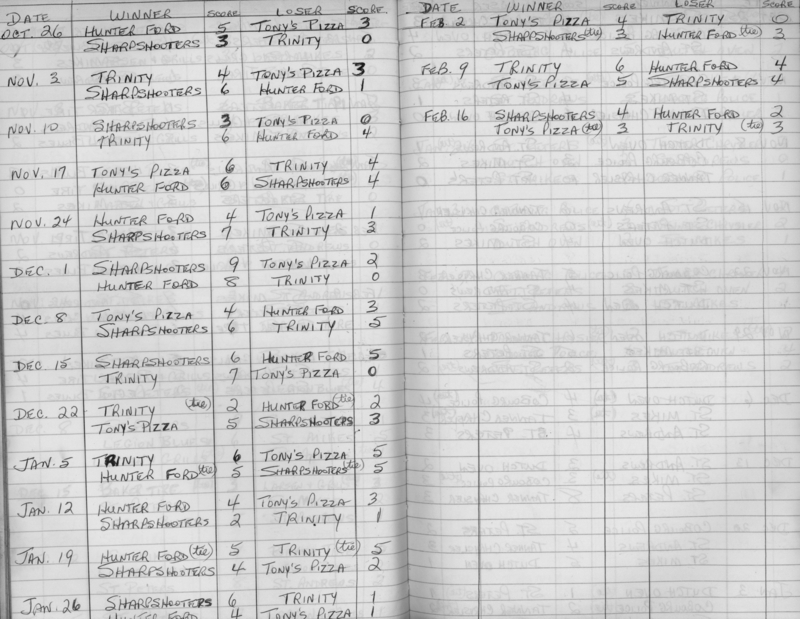 DATE WINNER SCORE LOSER SCORE
OCT. 26 HUNTER FORD 5 TONY'S PIZZA 3
SHARPSHOOTERS 3 TRINITY 0
NOV. 3 TRINITY 4 TONY'S PIZZA 3
SHARPSHOOTERS 6 HUNTER FORD 1
NOV. 10 SHARPSHOOTERS 3 TONY'S PIZZA 0
TRINITY 6 HUNTER FORD 4
NOV. 17 TONY'S PIZZA 6 TRINITY 4
HUNTER FORD 6 SHARPSHOOTERS 4
NOV. 24 HUNTER FORD 4 TONY'S PIZZA 1
SHARPSHOOTERS 7 TRINITY 3
DEC. 1 SHARPSHOOTERS 9 TONY'S PIZZA 2
HUNTER FORD 8 TRINITY 0
DEC. 8 TONY'S PIZZA 4 HUNTER FORD 3
SHARPSHOOTERS 6 TRINITY 5
DEC. 15 SHARPSHOOTERS 6 HUNTER FORD 5
TRINITY 7 TONY'S PIZZA 0
DEC. 22 TRINITY (tie) 2 HUNTER FORD (tie) 2
TONY'S PIZZA 5 SHARPSHOOTERS 3
JAN. 5 TRINITY 6 TONY'S PIZZA 5
HUNTER FORD (tie) 5 SHARPSHOOTERS (tie) 5
JAN. 12 HUNTER FORD 4 TONY'S PIZZA 3
SHARPSHOOTERS 2 TRINITY 1
JAN. 19 HUNTER FORD (tie) 5 TRINITY (tie) 5
SHARPSHOOTERS 4 TONY'S PIZZA 2
JAN. 26 SHARPSHOOTERS 6 TRINITY 1
HUNTER FORD 4 TONY'S PIZZA 1
DATE WINNER SCORE LOSER SCORE
FEB. 2 TONY'S PIZZA 4 TRINITY 0
SHARPSHOOTERS (tie) 3 HUNTER FORD (tie) 3
FEB. 9 TRINITY 6 HUNTER FORD 4
TONY'S PIZZA 5 SHARPSHOOTERS 4
FEB. 16 SHARPSHOOTERS 4 HUNTER FORD 2
TONY'S PIZZA (tie) 3 TRINITY (tie) 3